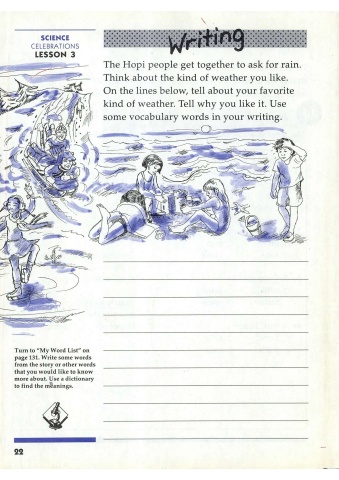 SCIENCE
CELEBRATIONS
LESSON 3
Writing
The Hopi people get together to ask for rain.
Think about the kind of weather you like.
On the lines below, tell about your favorite
kind of weather. Tell why you like it. Use
some vocabulary words in your writing.
Turn to "My Word List" on
page 131. Write some words
from the story or other words
that you would like to know
more about. Use a dictionary
to find the meanings.
22